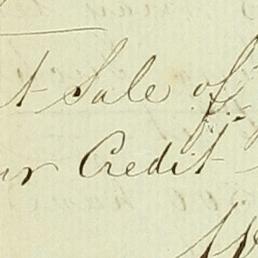 t Sale of
ur Credit